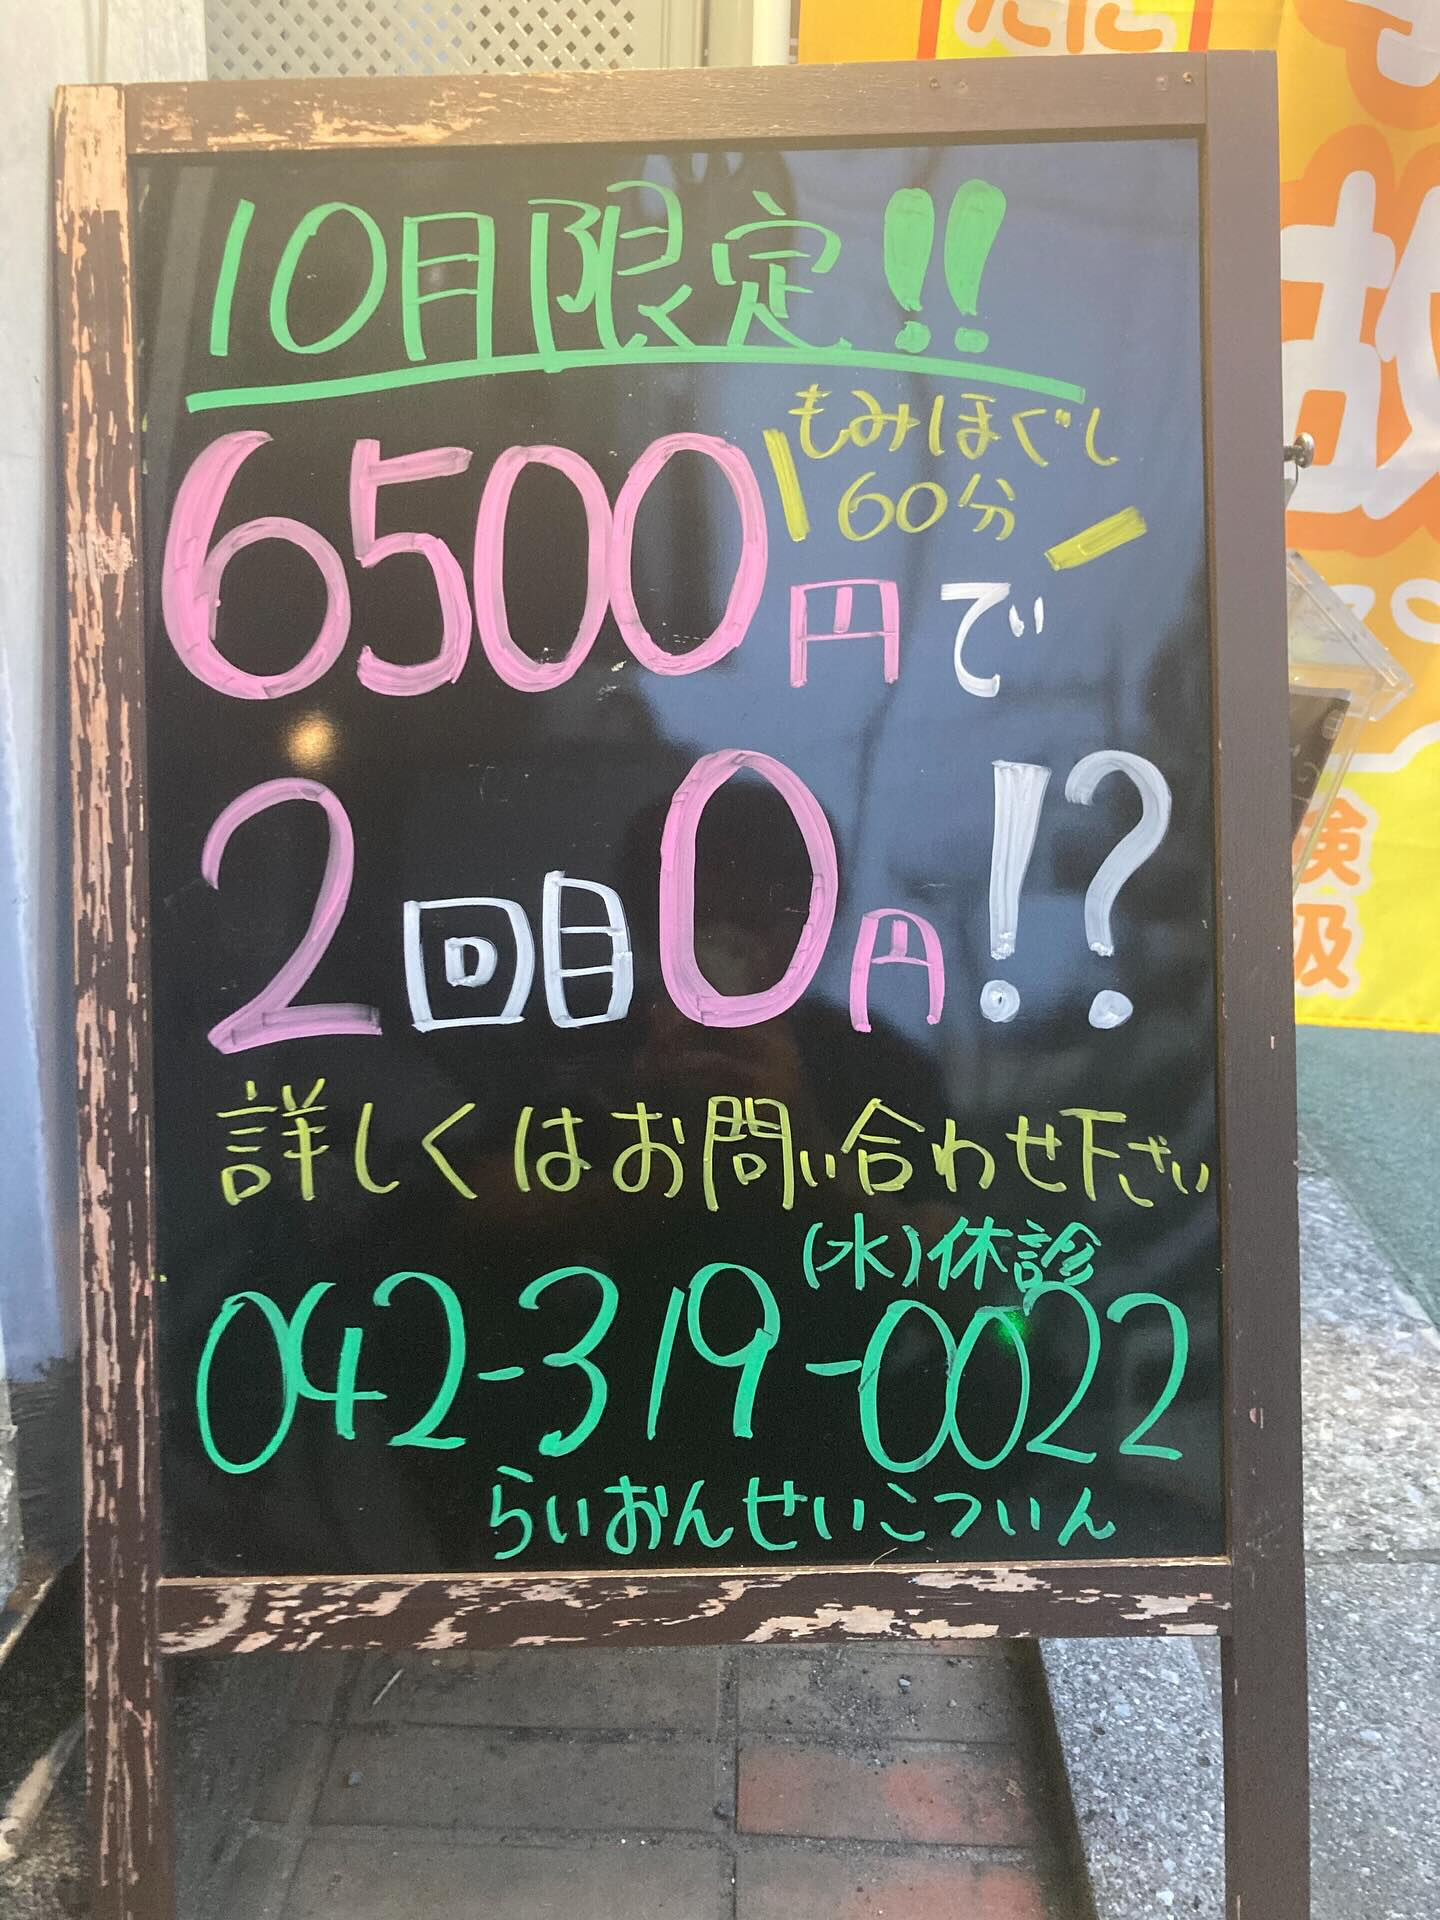 10月限定!!
もみほぐし
60分
6500円で
2回目0円!?
詳しくはお問い合わせ下さい
(水)休診
042-319-0022
らいおんせいこついん
検
扱